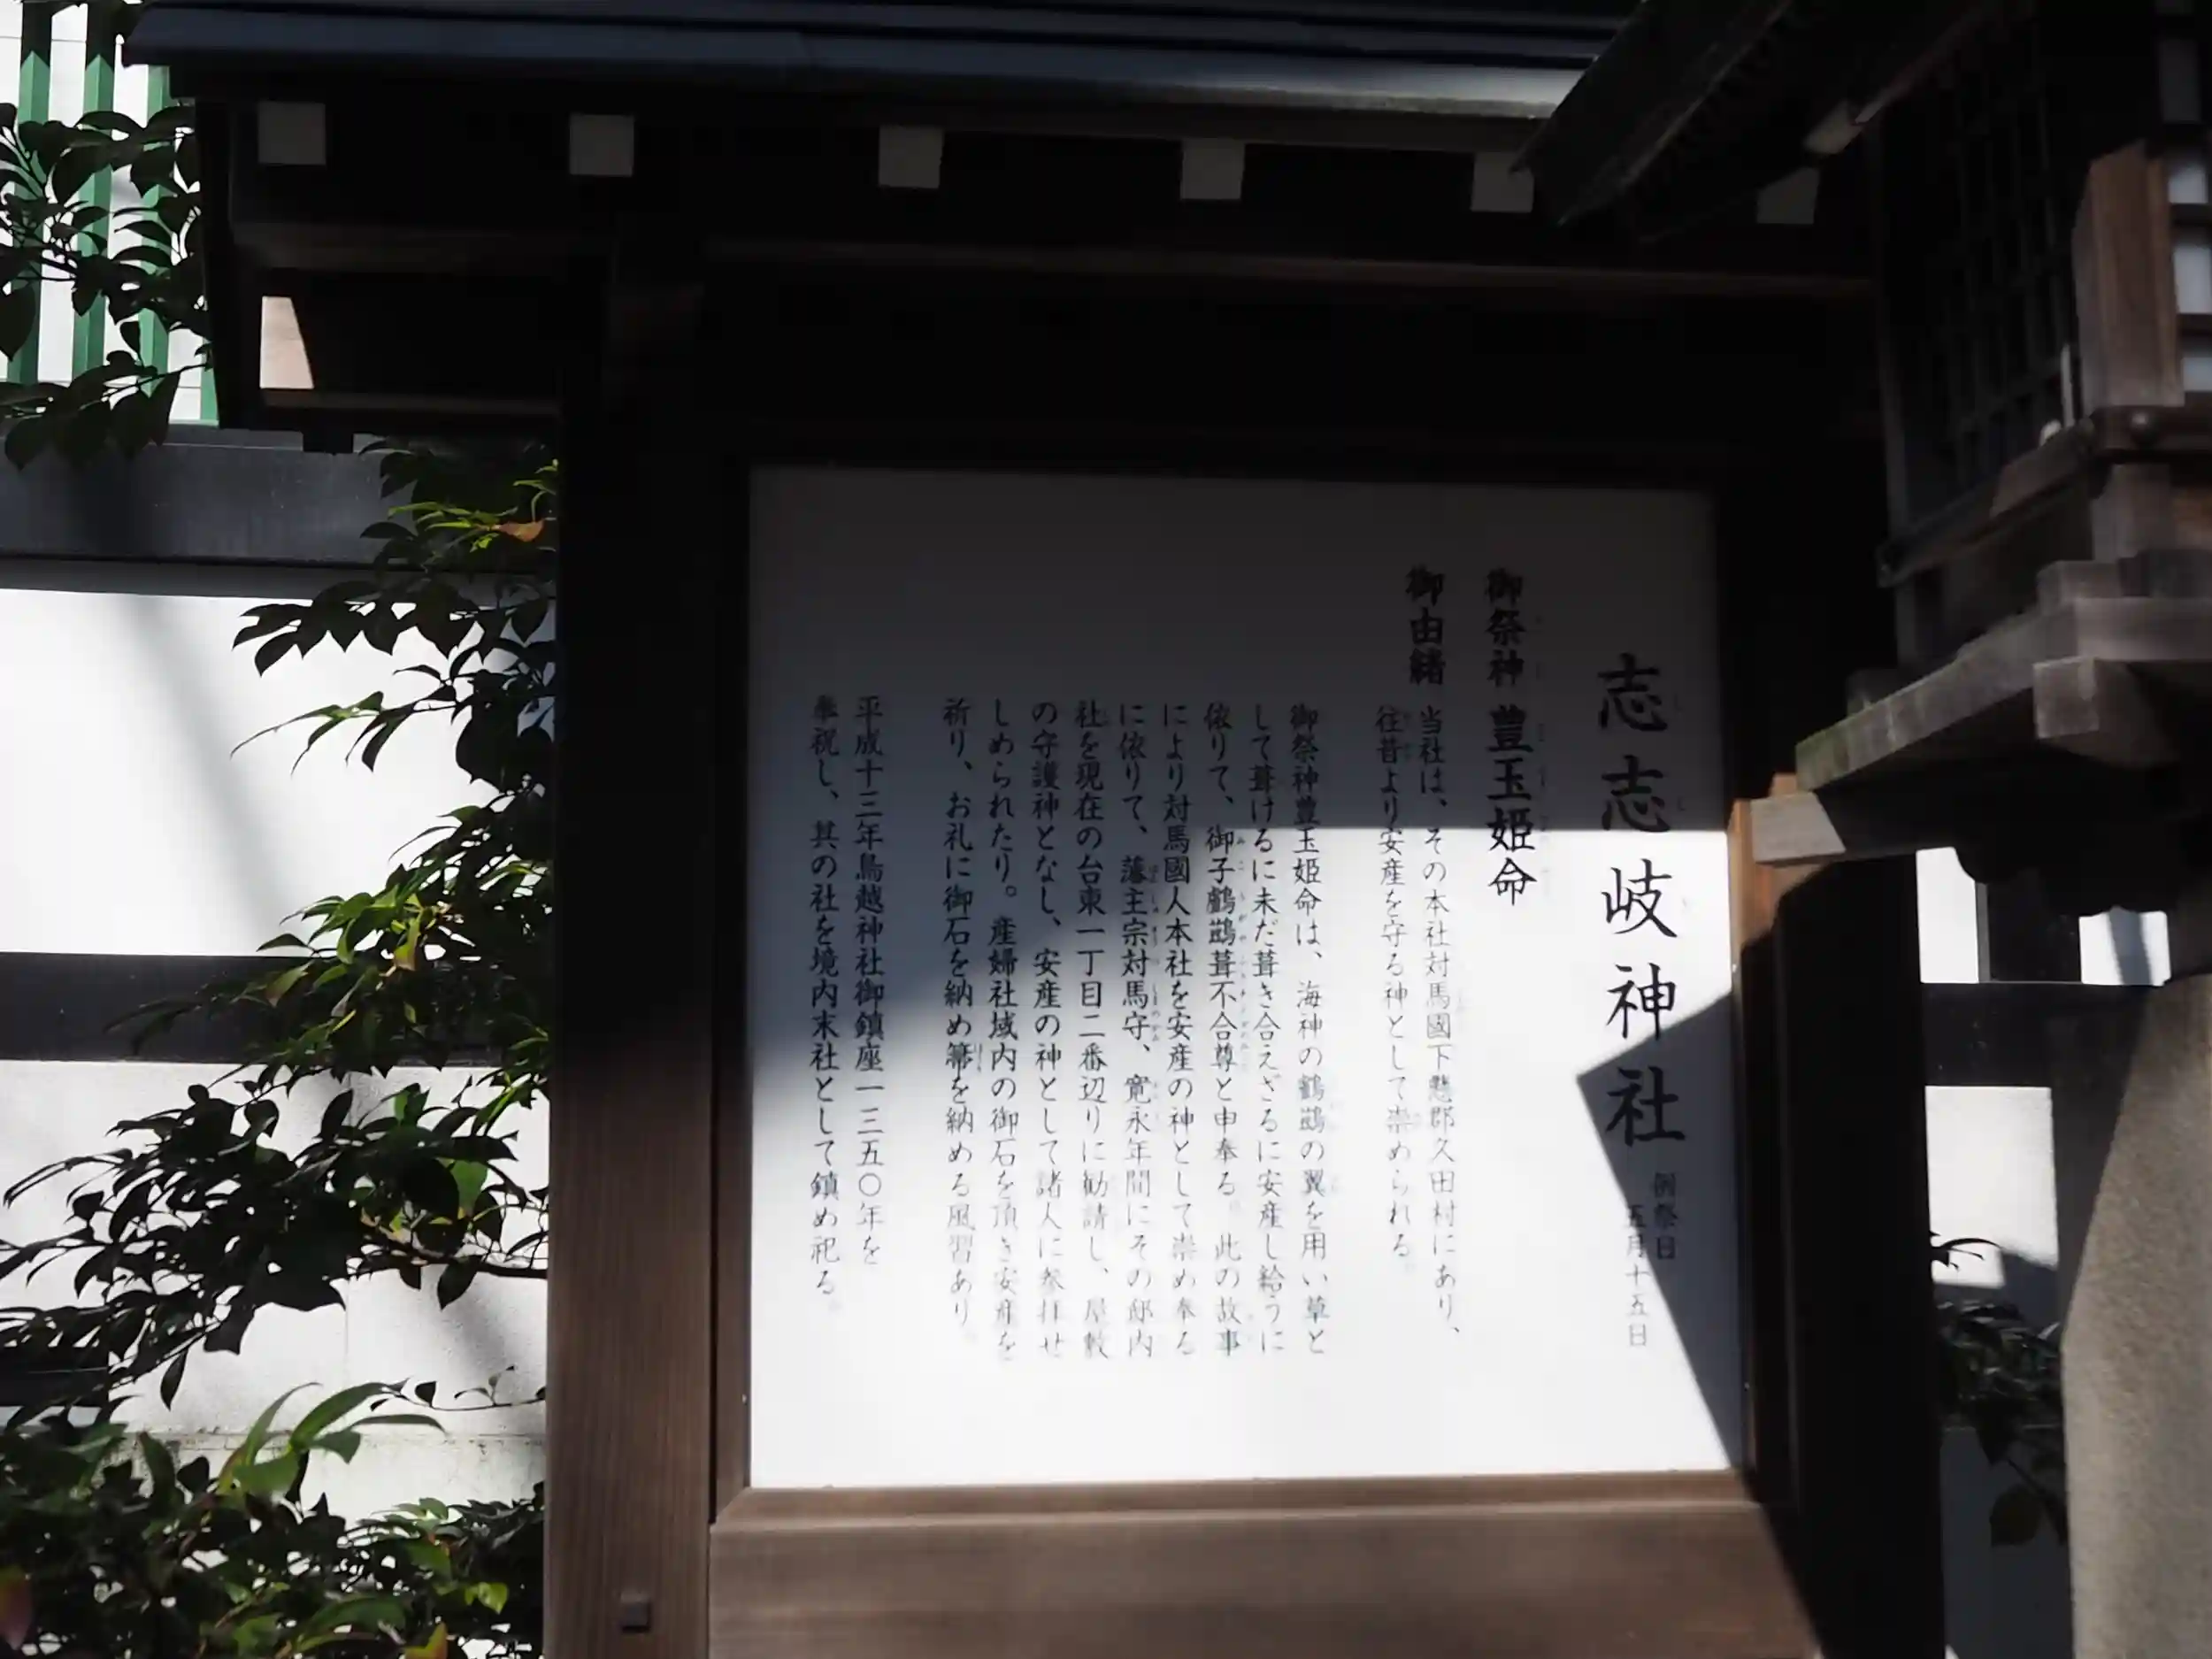 志志岐神社 例祭日
五月十五日
御祭神 豊玉姫命
御由緒 当社は、その本社対馬國下懸郡久田村にあり、
往昔より安産を守る神として崇められる。
御祭神豊玉姫命は、海神の鶴鷀の翼を用い草と
して葺けるに未だ葺き合えざるに安産し給うに
依りて、御子鸕鷀葺不合尊と申奉る。此の故事
により対馬國人本社を安産の神として崇め奉る
に依りて、藩主宗対馬守、寛永年間にその邸内
社を現在の台東一丁目二番辺りに勧請し、屋敷
の守護神となし、安産の神として諸人に参拝せ
しめられたり。産婦社域内の御石を頂き安産を
祈り、お礼に御石を納め箒を納める風習あり。
平成十三年鳥越神社御鎮座一三五〇年を
奉祝し、其の社を境内末社として鎮め祀る。